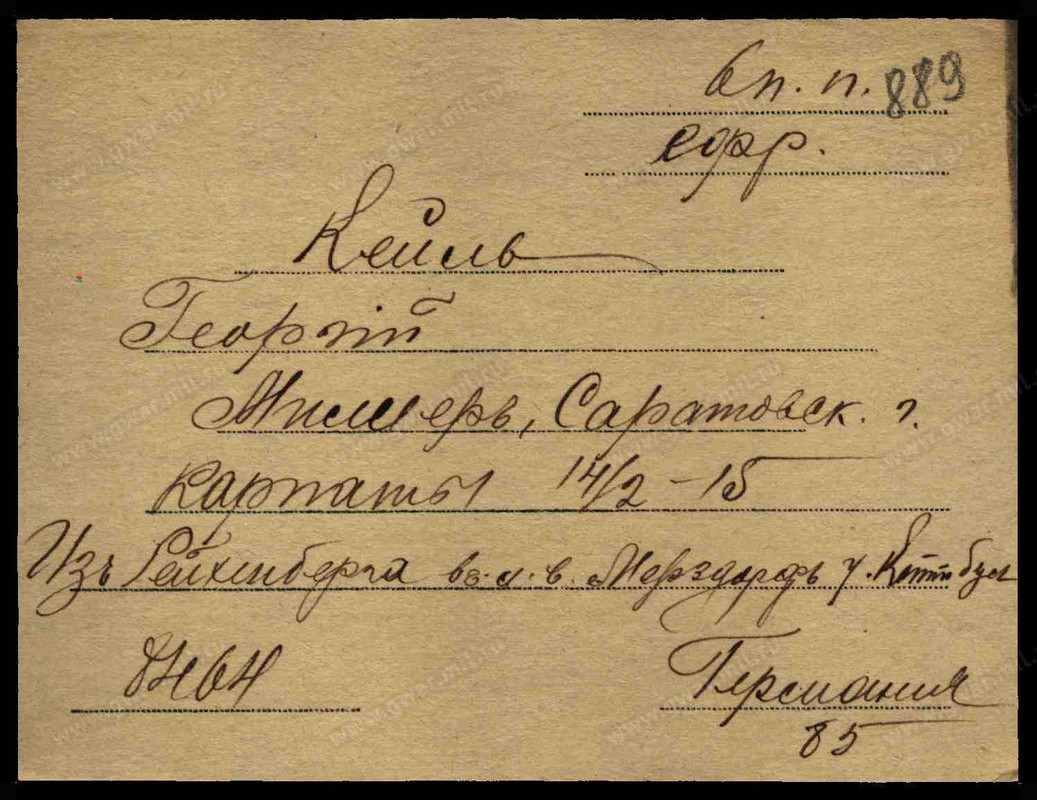 6 п. п. 889
ефр.
Кейль
Георгій
Миллеръ, Саратовск. г.
Карпаты 14/2 – 15
Изъ Рейхенберга в Мерздорфъ у. Коттбусъ
8464
Германия
85